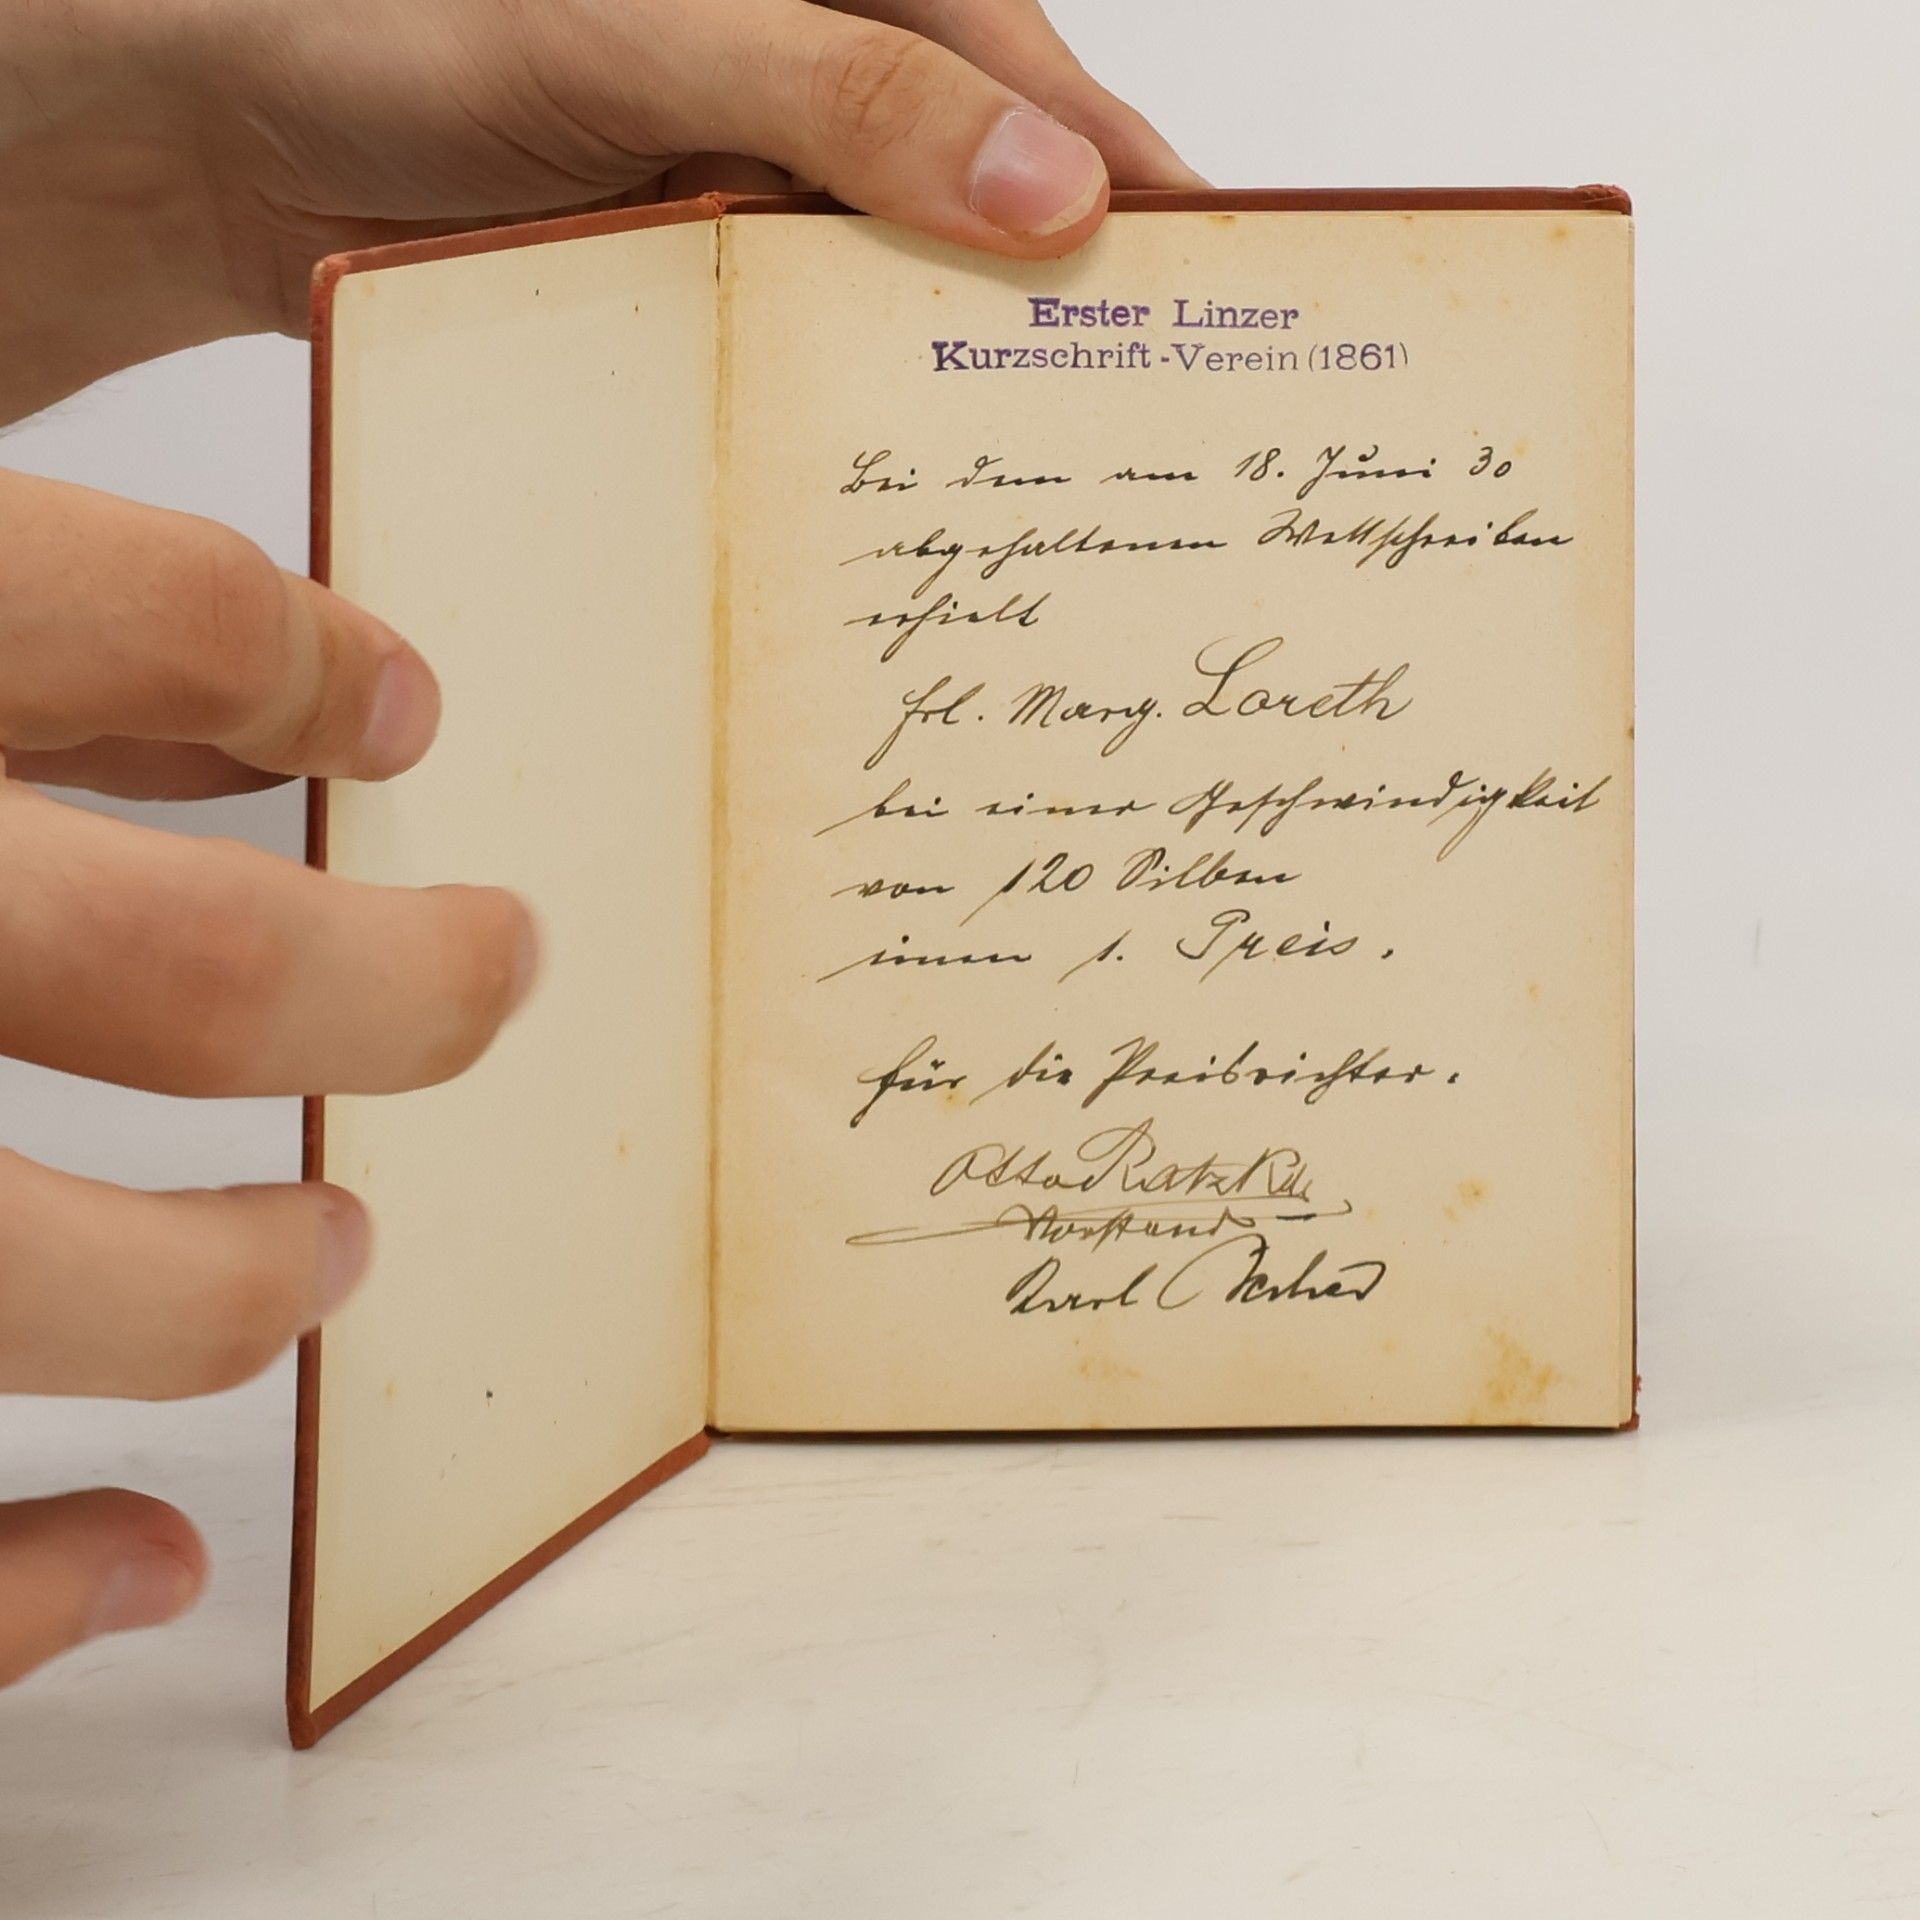 Erster Linzer
Kurzschrift-Verein (1861)
Bei dem am 18. Juni 30
abgehaltenen Wettschreiben
erhielt
Frl. Marg. Loreth
bei einer Geschwindigkeit
von 120 Silben
einen 1. Preis.
Für die Preisrichter.
Otto
Vorstand
Karl